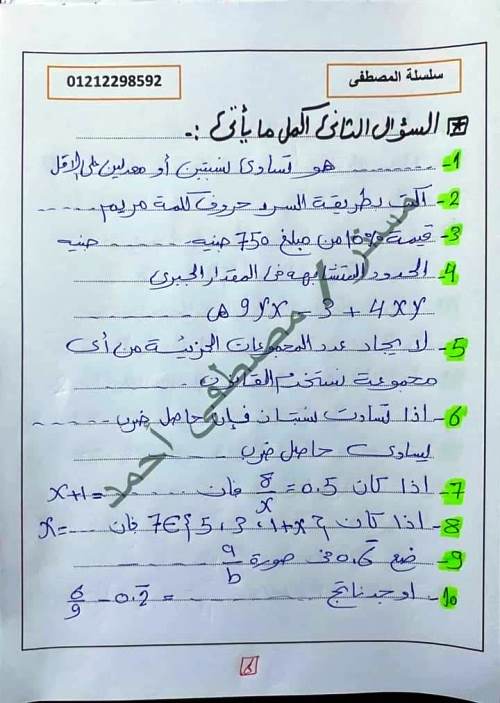 سلسلة المصطفى
01212298592
السؤال الثانى أكمل ما يأتى :-
1- ............ هو تساوى نسبتين أو معدلين على الاقل
2- اكتب بطريقة السرد حروف كلمة مريم ......
3- قيمة 10% من مبلغ 750 جنيه ............ جنيه
4- الحدود المتشابهه فى المقدار الجبرى
9yx - 3 + 4xy هى ............
5- لايجاد عدد المجموعات الجزئية من أى
مجموعة نستخدم القانون ............
6- اذا تساوت نسبتان فإن حاصل ضرب ............
يساوى حاصل ضرب ............
7- اذا كان 8/x = 0.5 فان ............ = x+1
8- اذا كان 7∈{5 ، 3 ، 1+x} فان ..... = x
9- ضع 0.6̅ فى صورة a/b ............
10- اوجد ناتج ............ = 6/9 - 0.2̅
مستر / مصطفى أحمد